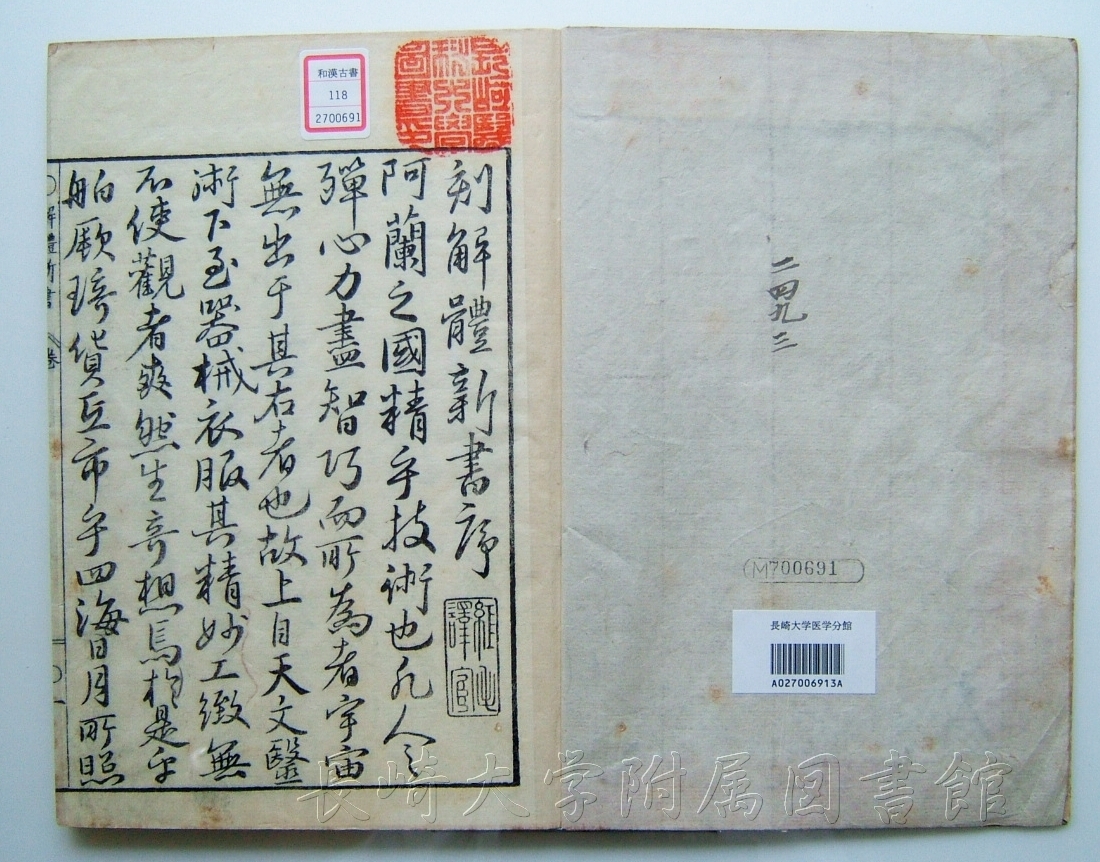 刻解體新書序
阿蘭之國精乎技術也凡人之
殫心力盡智巧而所為者宇宙
無出于其右者也故上自天文醫
術下至器械衣服其精妙工緻無
不使觀者爽然生奇想焉於是乎
舶厥琦貨互市乎四海日月所照
解體新書
卷
和漢古書
118
2700691
長崎醫
科大學
圖書之印
二四九三
M700691
長崎大学医学分館
A027006913A
長崎大学附属図書館